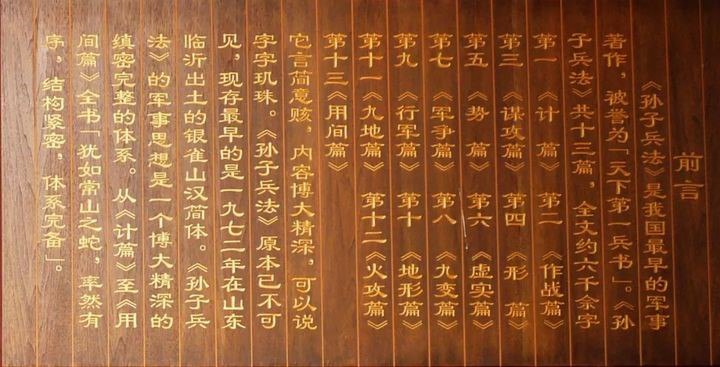 前言
《孙子兵法》是我国最早的军事
著作，被誉为「天下第一兵书」。《孙
子兵法》共十三篇，全文约六千余字
第一《计 篇》 第二《作战篇》
第三《谋攻篇》 第四《形 篇》
第五《势 篇》 第六《虚实篇》
第七《军争篇》 第八《九变篇》
第九《行军篇》 第十《地形篇》
第十一《九地篇》 第十二《火攻篇》
第十三《用间篇》
它言简意赅，内容博大精深，可以说
字字玑珠。《孙子兵法》原本已不可
见，现存最早的是一九七二年在山东
临沂出土的银雀山汉简体。《孙子兵
法》的军事思想是一个博大精深的
缜密完整的体系。从《计篇》至《用
间篇》全书「犹如常山之蛇，率然有
序，结构紧密，体系完备」。